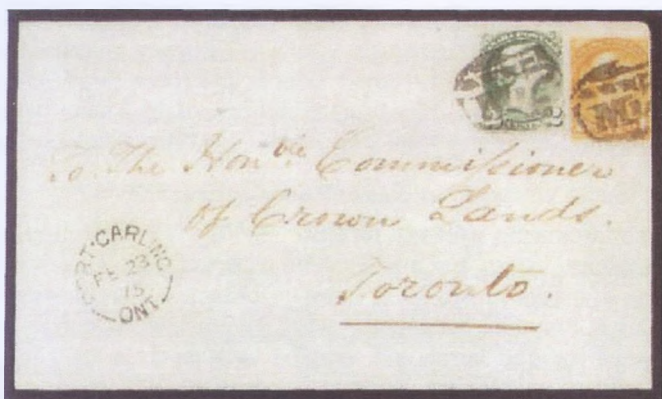 To The Honble Commissioner
of Crown Lands.
Toronto.
PORT·CARLING
FE 23
75
ONT.